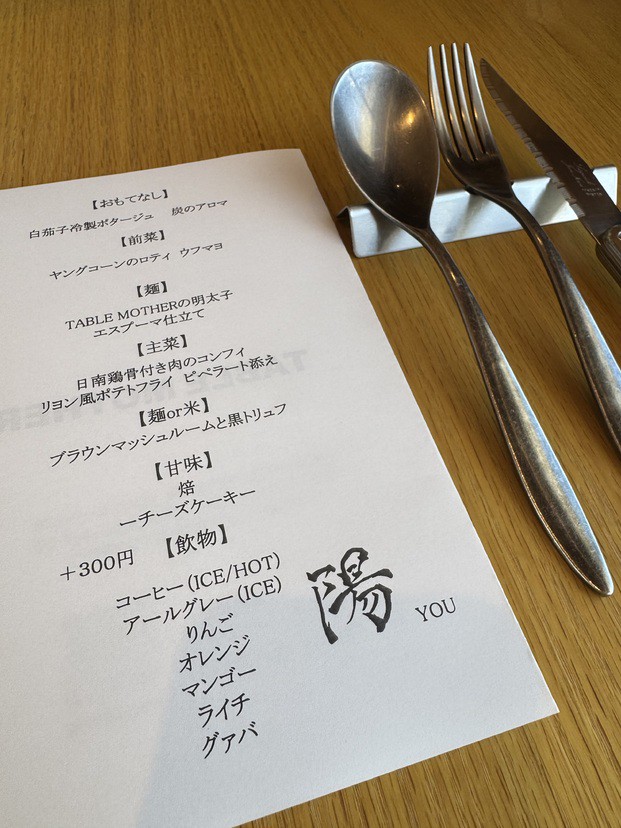 【おもてなし】
白茄子冷製ポタージュ　炭のアロマ
【前菜】
ヤングコーンのロティ ウフマヨ
【麺】
TABLE MOTHERの明太子
エスプーマ仕立て
【主菜】
日南鶏骨付き肉のコンフィ
リヨン風ポテトフライ ピペラート添え
【麺or米】
ブラウンマッシュルームと黒トリュフ
【甘味】
焙
ーチーズケーキー
+300円 【飲物】
コーヒー(ICE/HOT)
アールグレー(ICE)
りんご
オレンジ
マンゴー
ライチ
グァバ
陽 YOU